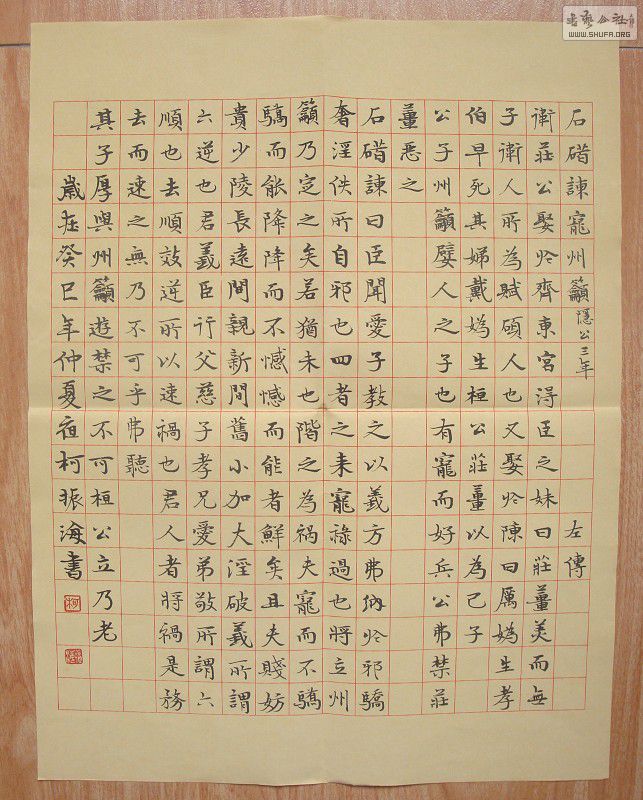 石碏諫寵州籲 隱公三年 左傳
衛莊公娶扵齊東宮淂臣之妹曰莊薑美而無
子衛人所為賦碩人也又娶扵陳曰厲媯生孝
伯早死其娣戴媯生桓公莊薑以為己子
公子州籲嬖人之子也有寵而好兵公弗禁莊
薑惡之
石碏諫曰臣聞愛子教之以義方弗納扵邪驕
奢淫佚所自邪也四者之耒寵祿過也將立州
籲乃定之矣若猶未也階之為禍夫寵而不驕
驕而能降降而不憾憾而能者鮮矣且夫賤妨
貴少陵長遠間親新間舊小加大淫破義所謂
六逆也君義臣行父慈子孝兄愛弟敬所謂六
順也去順效逆所以速禍也君人者將禍是務
去而速之無乃不可乎弗聽
其子厚與州籲遊禁之不可桓公立乃老
歲在癸巳年仲夏夜柯振海書
柯
WWW.SHUFA.ORG